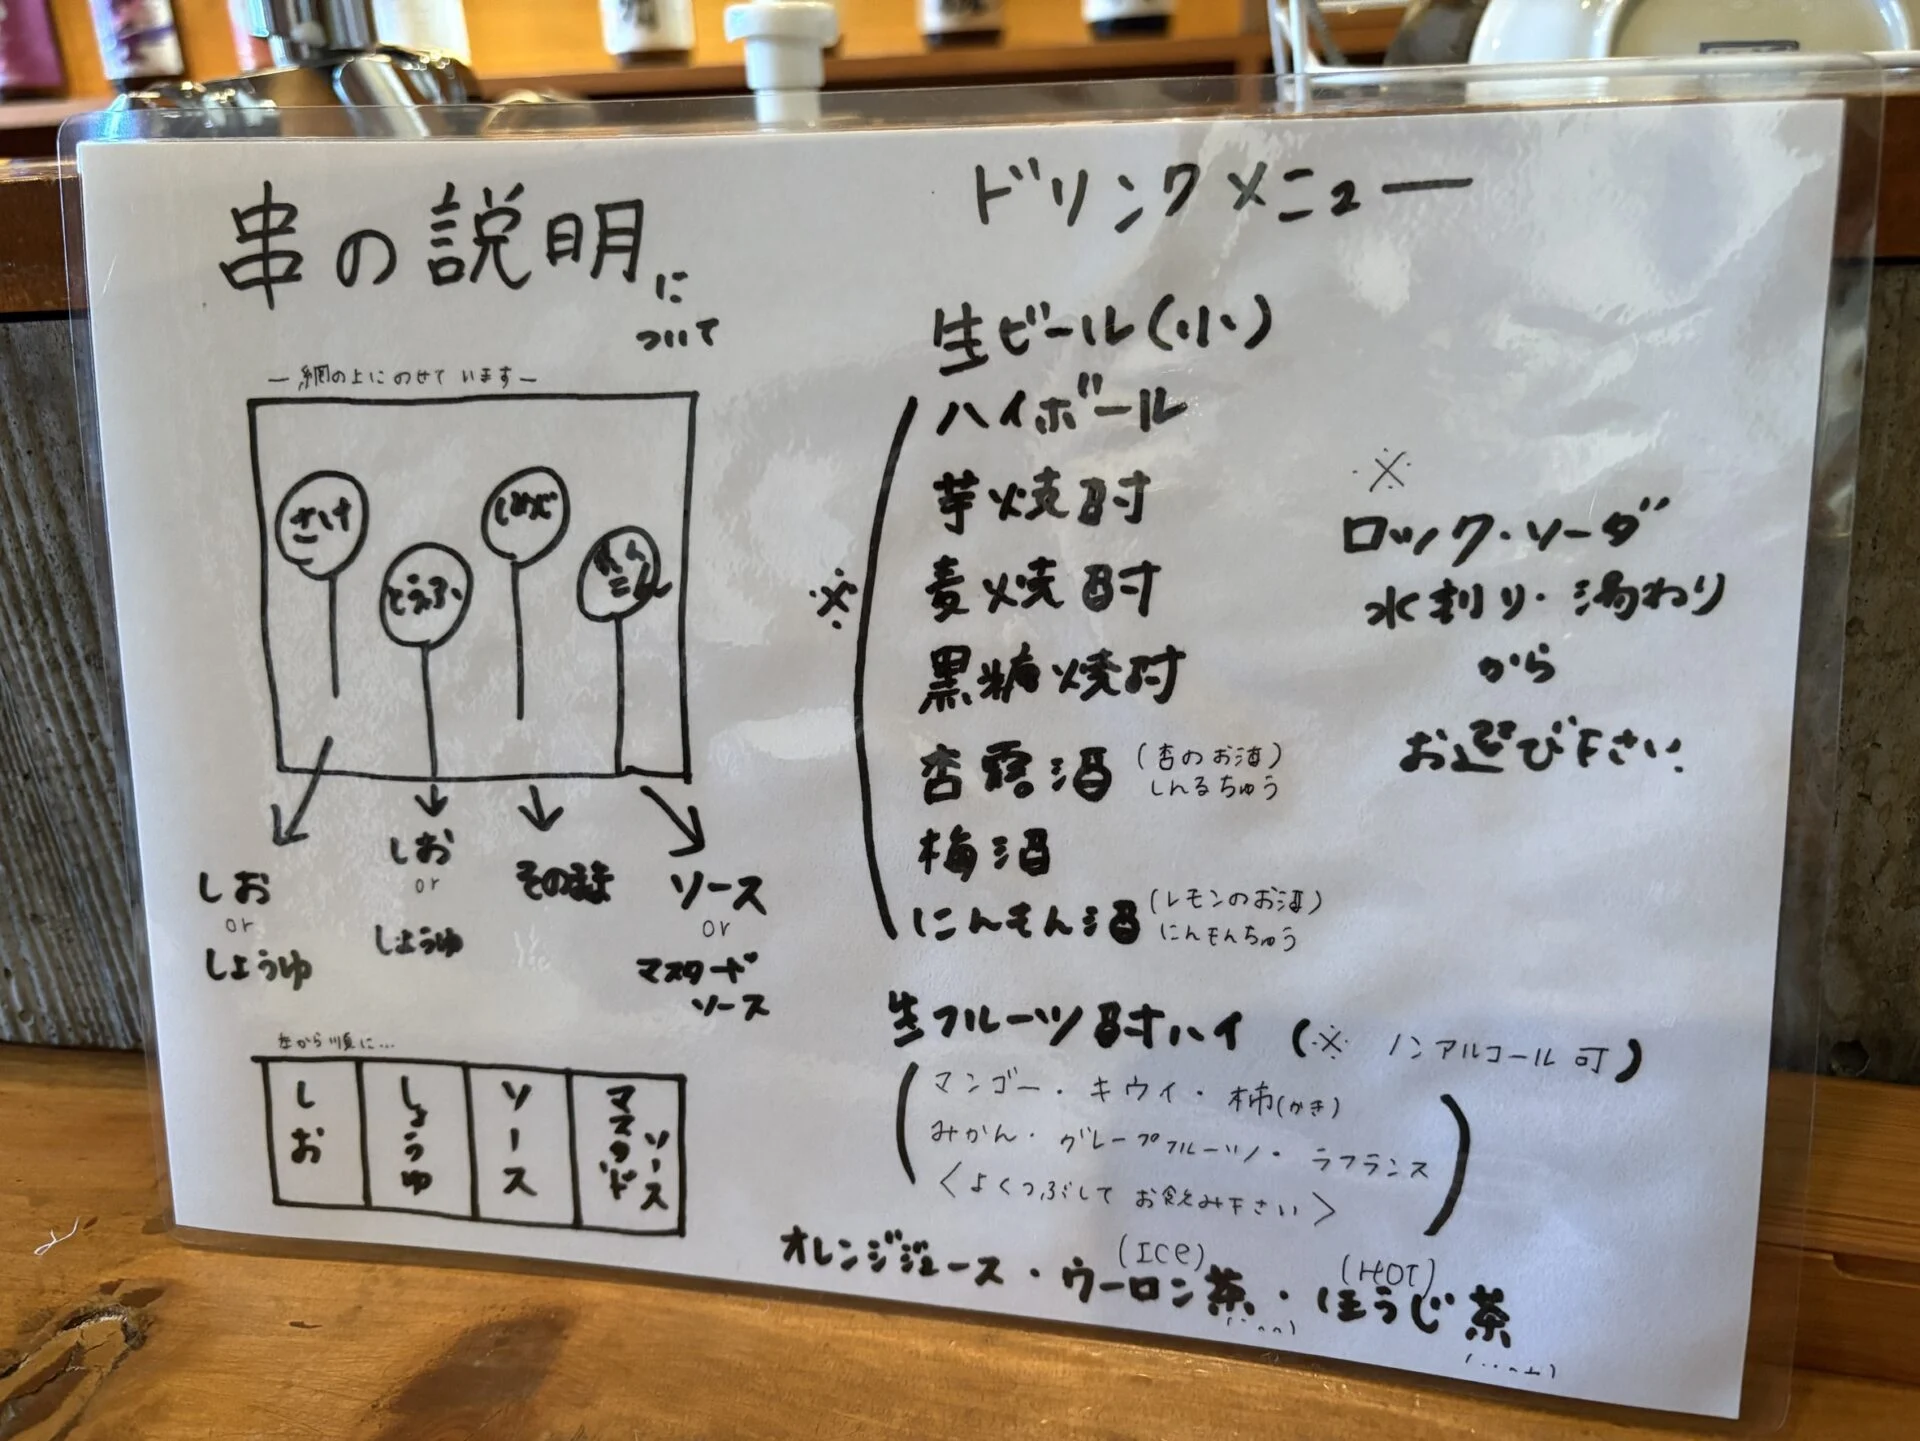 串の説明に
ついて
ー網の上にのせていますー
さけ
とうふ
しめじ
しお
or
しょうゆ
しお
or
しょうゆ
そのまま
ソース
or
マスタード
ソース
左から順に…
しお
しょうゆ
ソース
マスタード
ソース
ドリンクメニュー
生ビール(小)
※
ハイボール
芋焼酎
麦焼酎
黒糖焼酎
杏露酒(杏のお酒)
しんるちゅう
梅酒
にんもん酒(レモンのお酒)
にんもんちゅう
※
ロック・ソーダ
水割り・湯わり
から
お選び下さい
生フルーツ酎ハイ(※ノンアルコール可)
(マンゴー・キウイ・柿(かき)
みかん・グレープフルーツ・ラフランス
〈よくつぶしてお飲み下さい〉)
(ICE) (HOT)
オレンジジュース・ウーロン茶・ほうじ茶